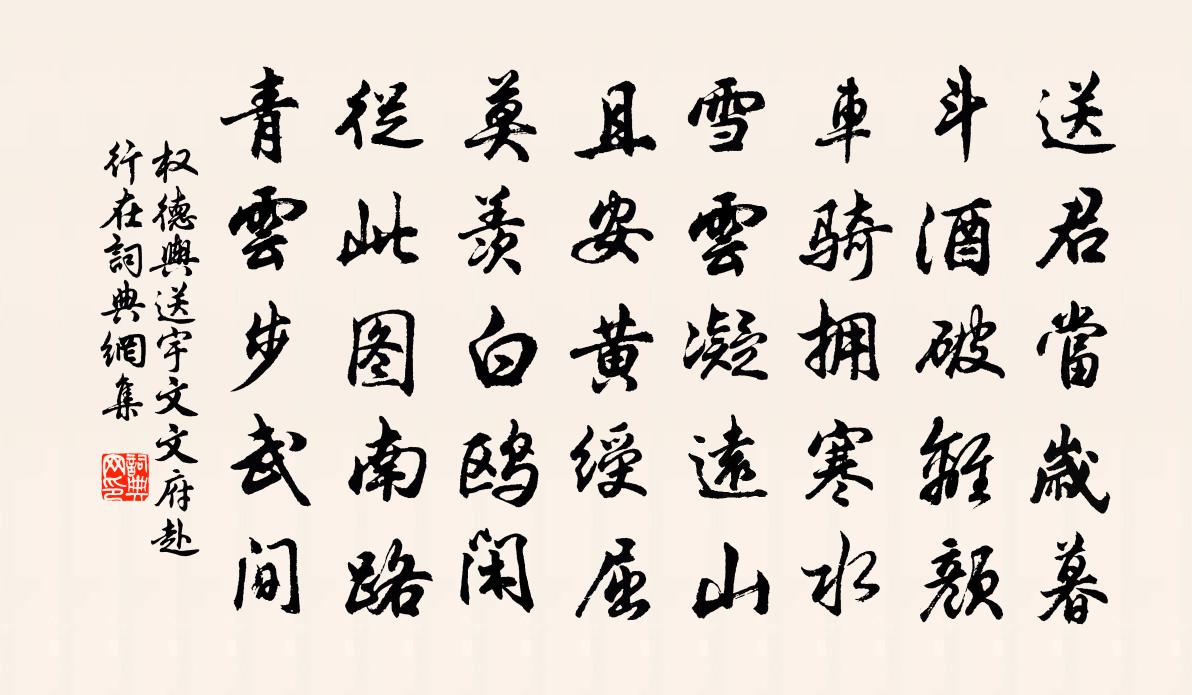 送君當歲暮
斗酒破離顏
車骑拥寒水
雪雲凝遠山
且安黃綬屈
莫羨白鸥閑
從此图南路
青雲步武間
权德輿送宇文文府赴
行在詞典網集
詞典网印